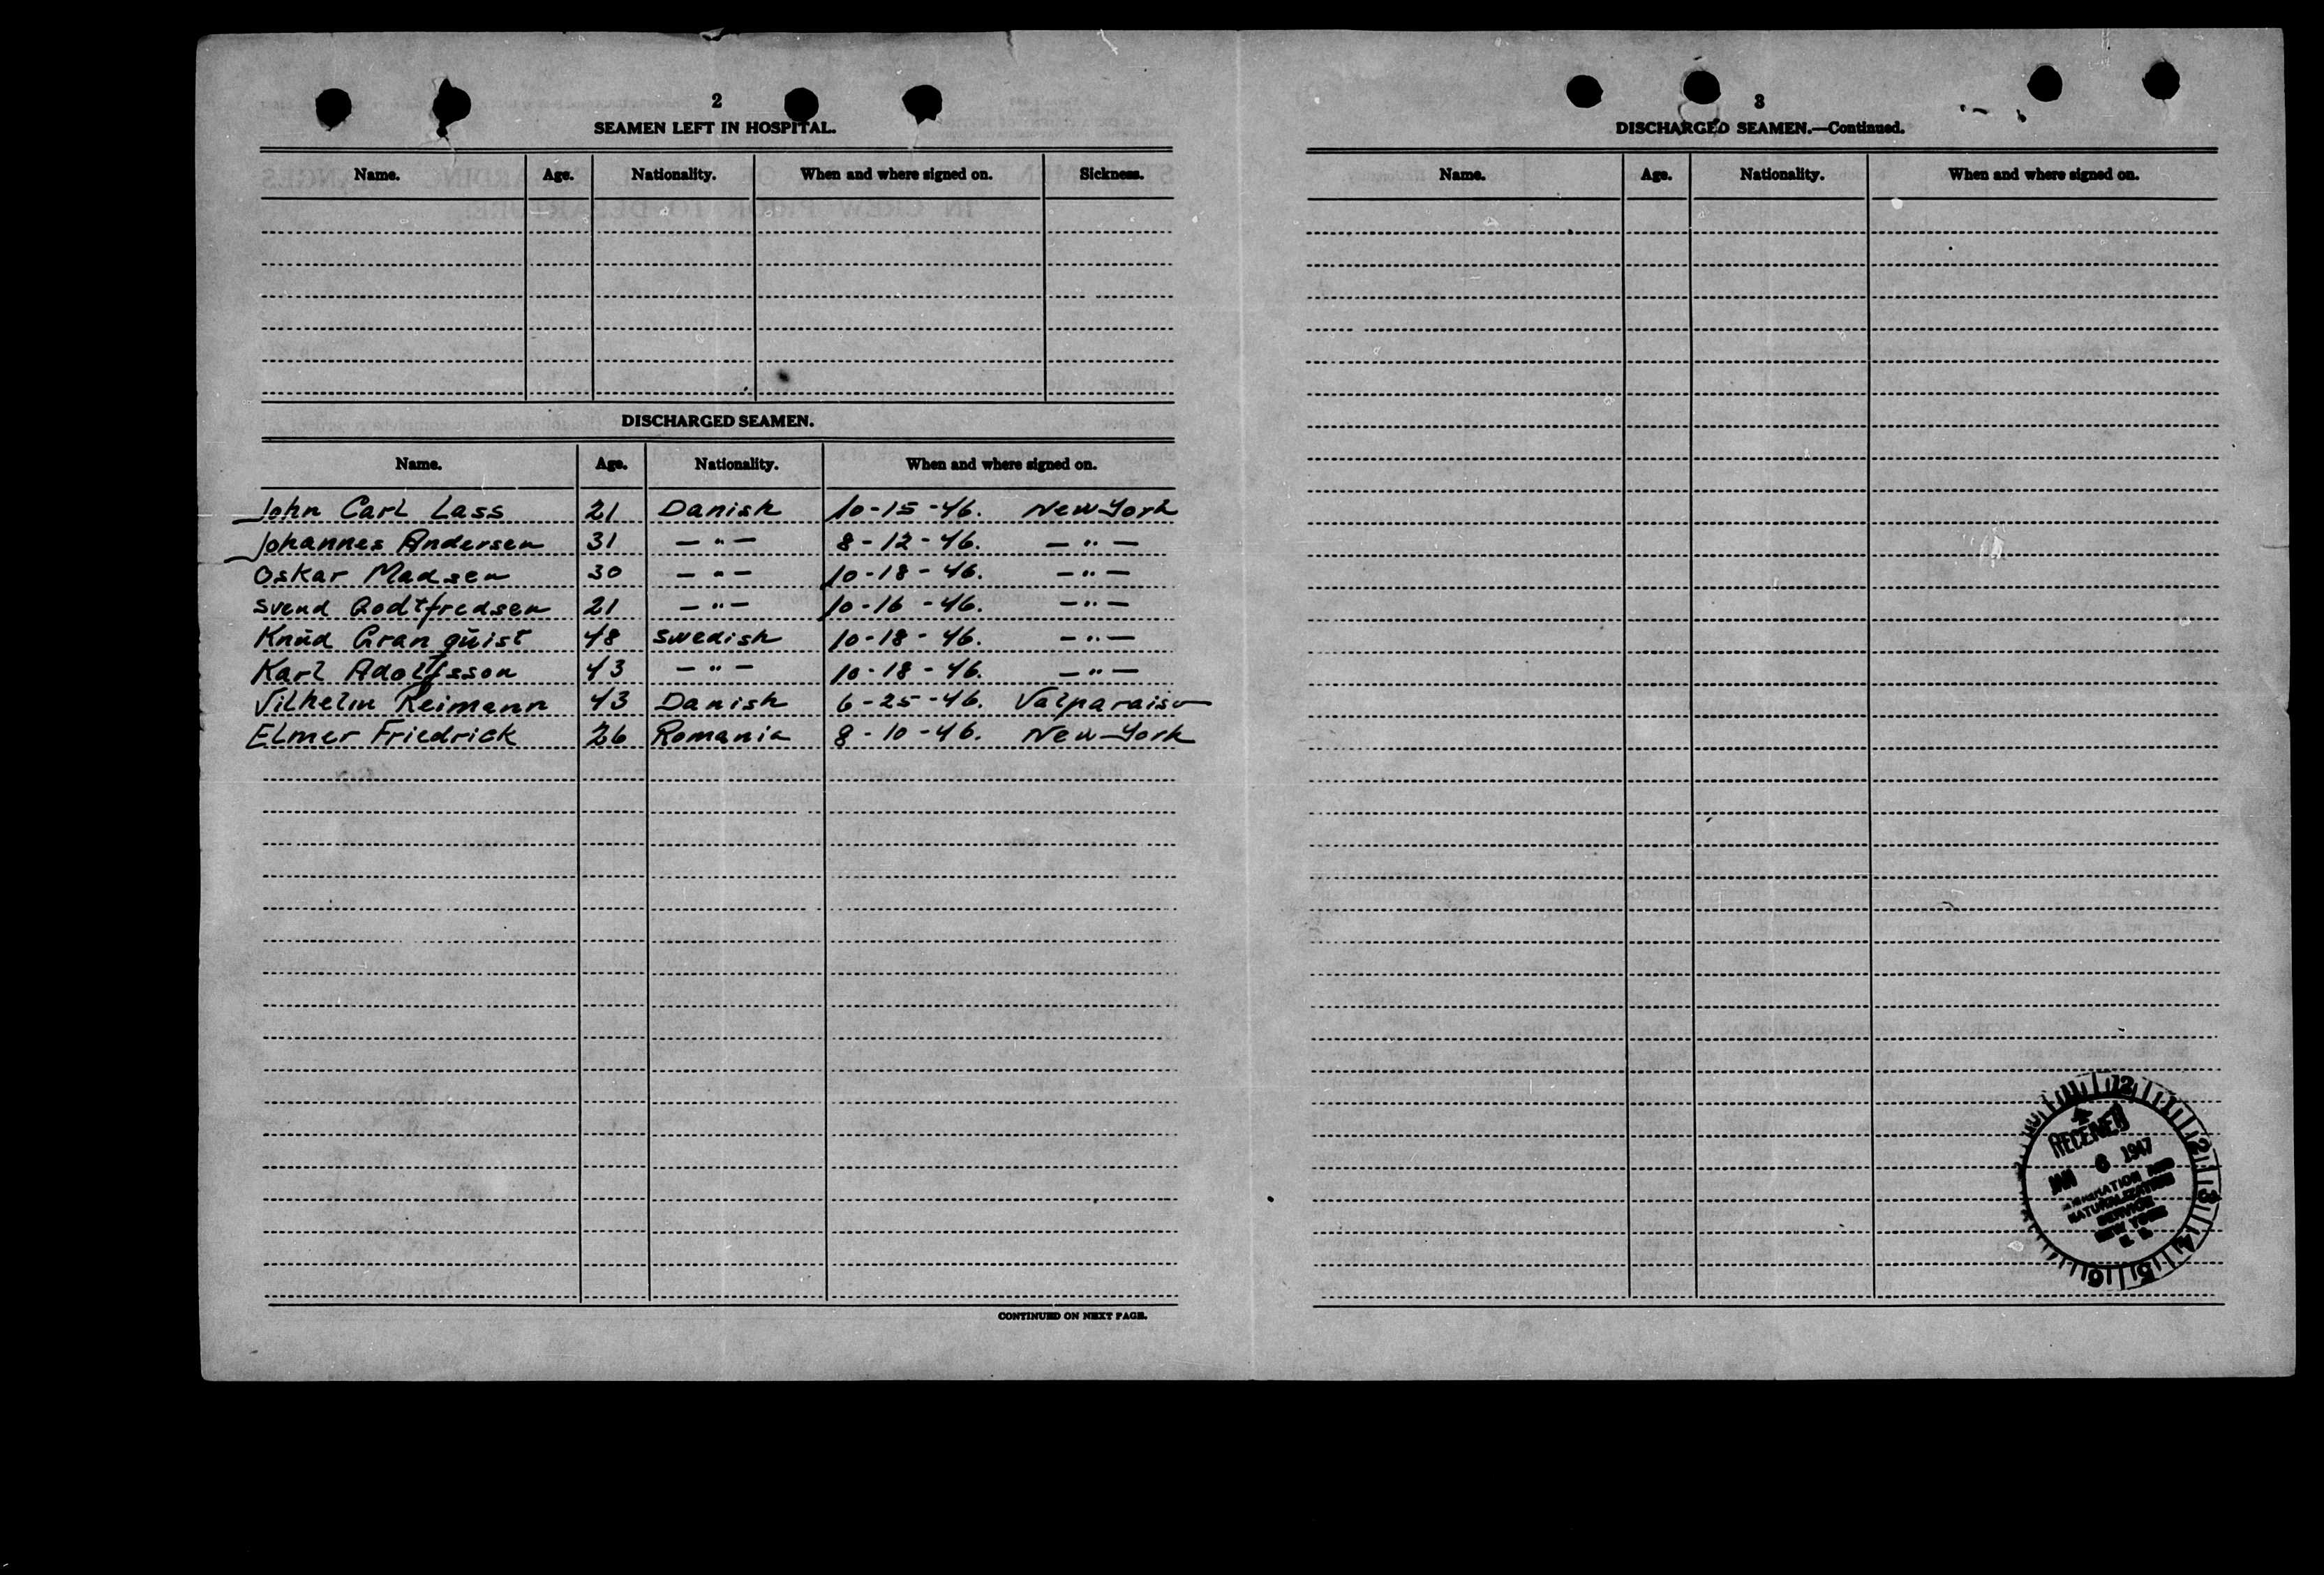 2
SEAMEN LEFT IN HOSPITAL.
Name. Age. Nationality. When and where signed on. Sickness.
DISCHARGED SEAMEN.
Name. Age. Nationality. When and where signed on.
John Carl Lass 21 Danish 10-15-46. New York
Johannes Andersen 31 — " — 8-12-46. — " —
Oskar Madsen 30 — " — 10-18-46. — " —
Svend Godtfredsen 21 — " — 10-16-46. — " —
Knud Granquist 48 Swedish 10-18-46. — " —
Karl Adolfsson 43 — " — 10-18-46. — " —
Vilhelm Reimann 43 Danish 6-25-46. Valparaiso
Elmer Friedrick 26 Romania 8-10-46. New York
CONTINUED ON NEXT PAGE.
3
DISCHARGED SEAMEN.—Continued.
Name. Age. Nationality. When and where signed on.
12 1 2 3 4 5 6
RECEIVED
JAN 6 1947
IMMIGRATION AND
NATURALIZATION
SERVICE
NEW YORK
N. Y.